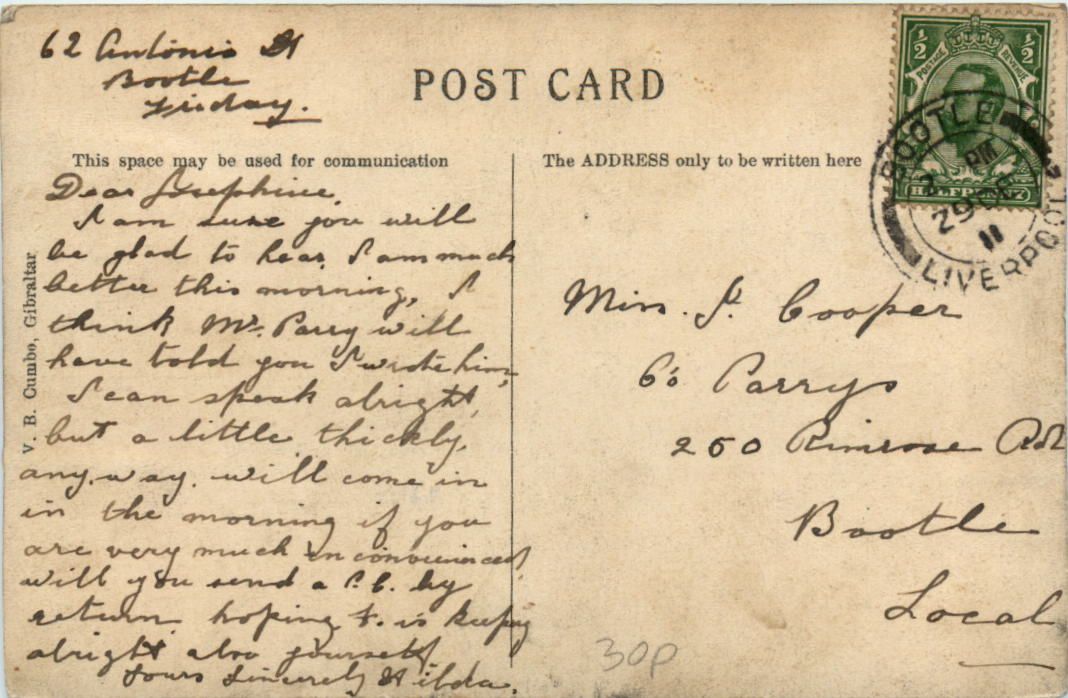 62 Antonis St
Bootle
Friday.
POST CARD
This space may be used for communication
The ADDRESS only to be written here
Dear Josephine,
I am sure you will
be glad to hear, I am much
better this morning, I
think Mr. Parry will
have told you I wrote him,
I can speak alright,
but a little thickly,
any. way. will come in
in the morning if you
are very much inconvenienced,
will you send a P.C. by
return hoping F. is keeping
alright also yourself
Yours Sincerely Hilda.
V. B. Cumbo, Gibraltar
½ ½
POSTAGE REVENUE
HALFPENNY
BOOTLE
PM
29 DE
11
LIVERPOOL
Miss. J. Cooper
c/o Parrys
250 Rimrose Rd
Bootle
Local
30p